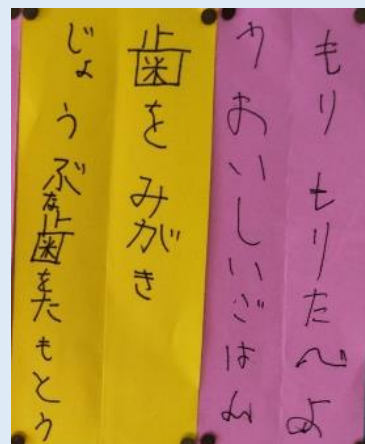 もりもりたべよ
うおいしいごはん
歯をみがき
じょうぶな歯をたもとう